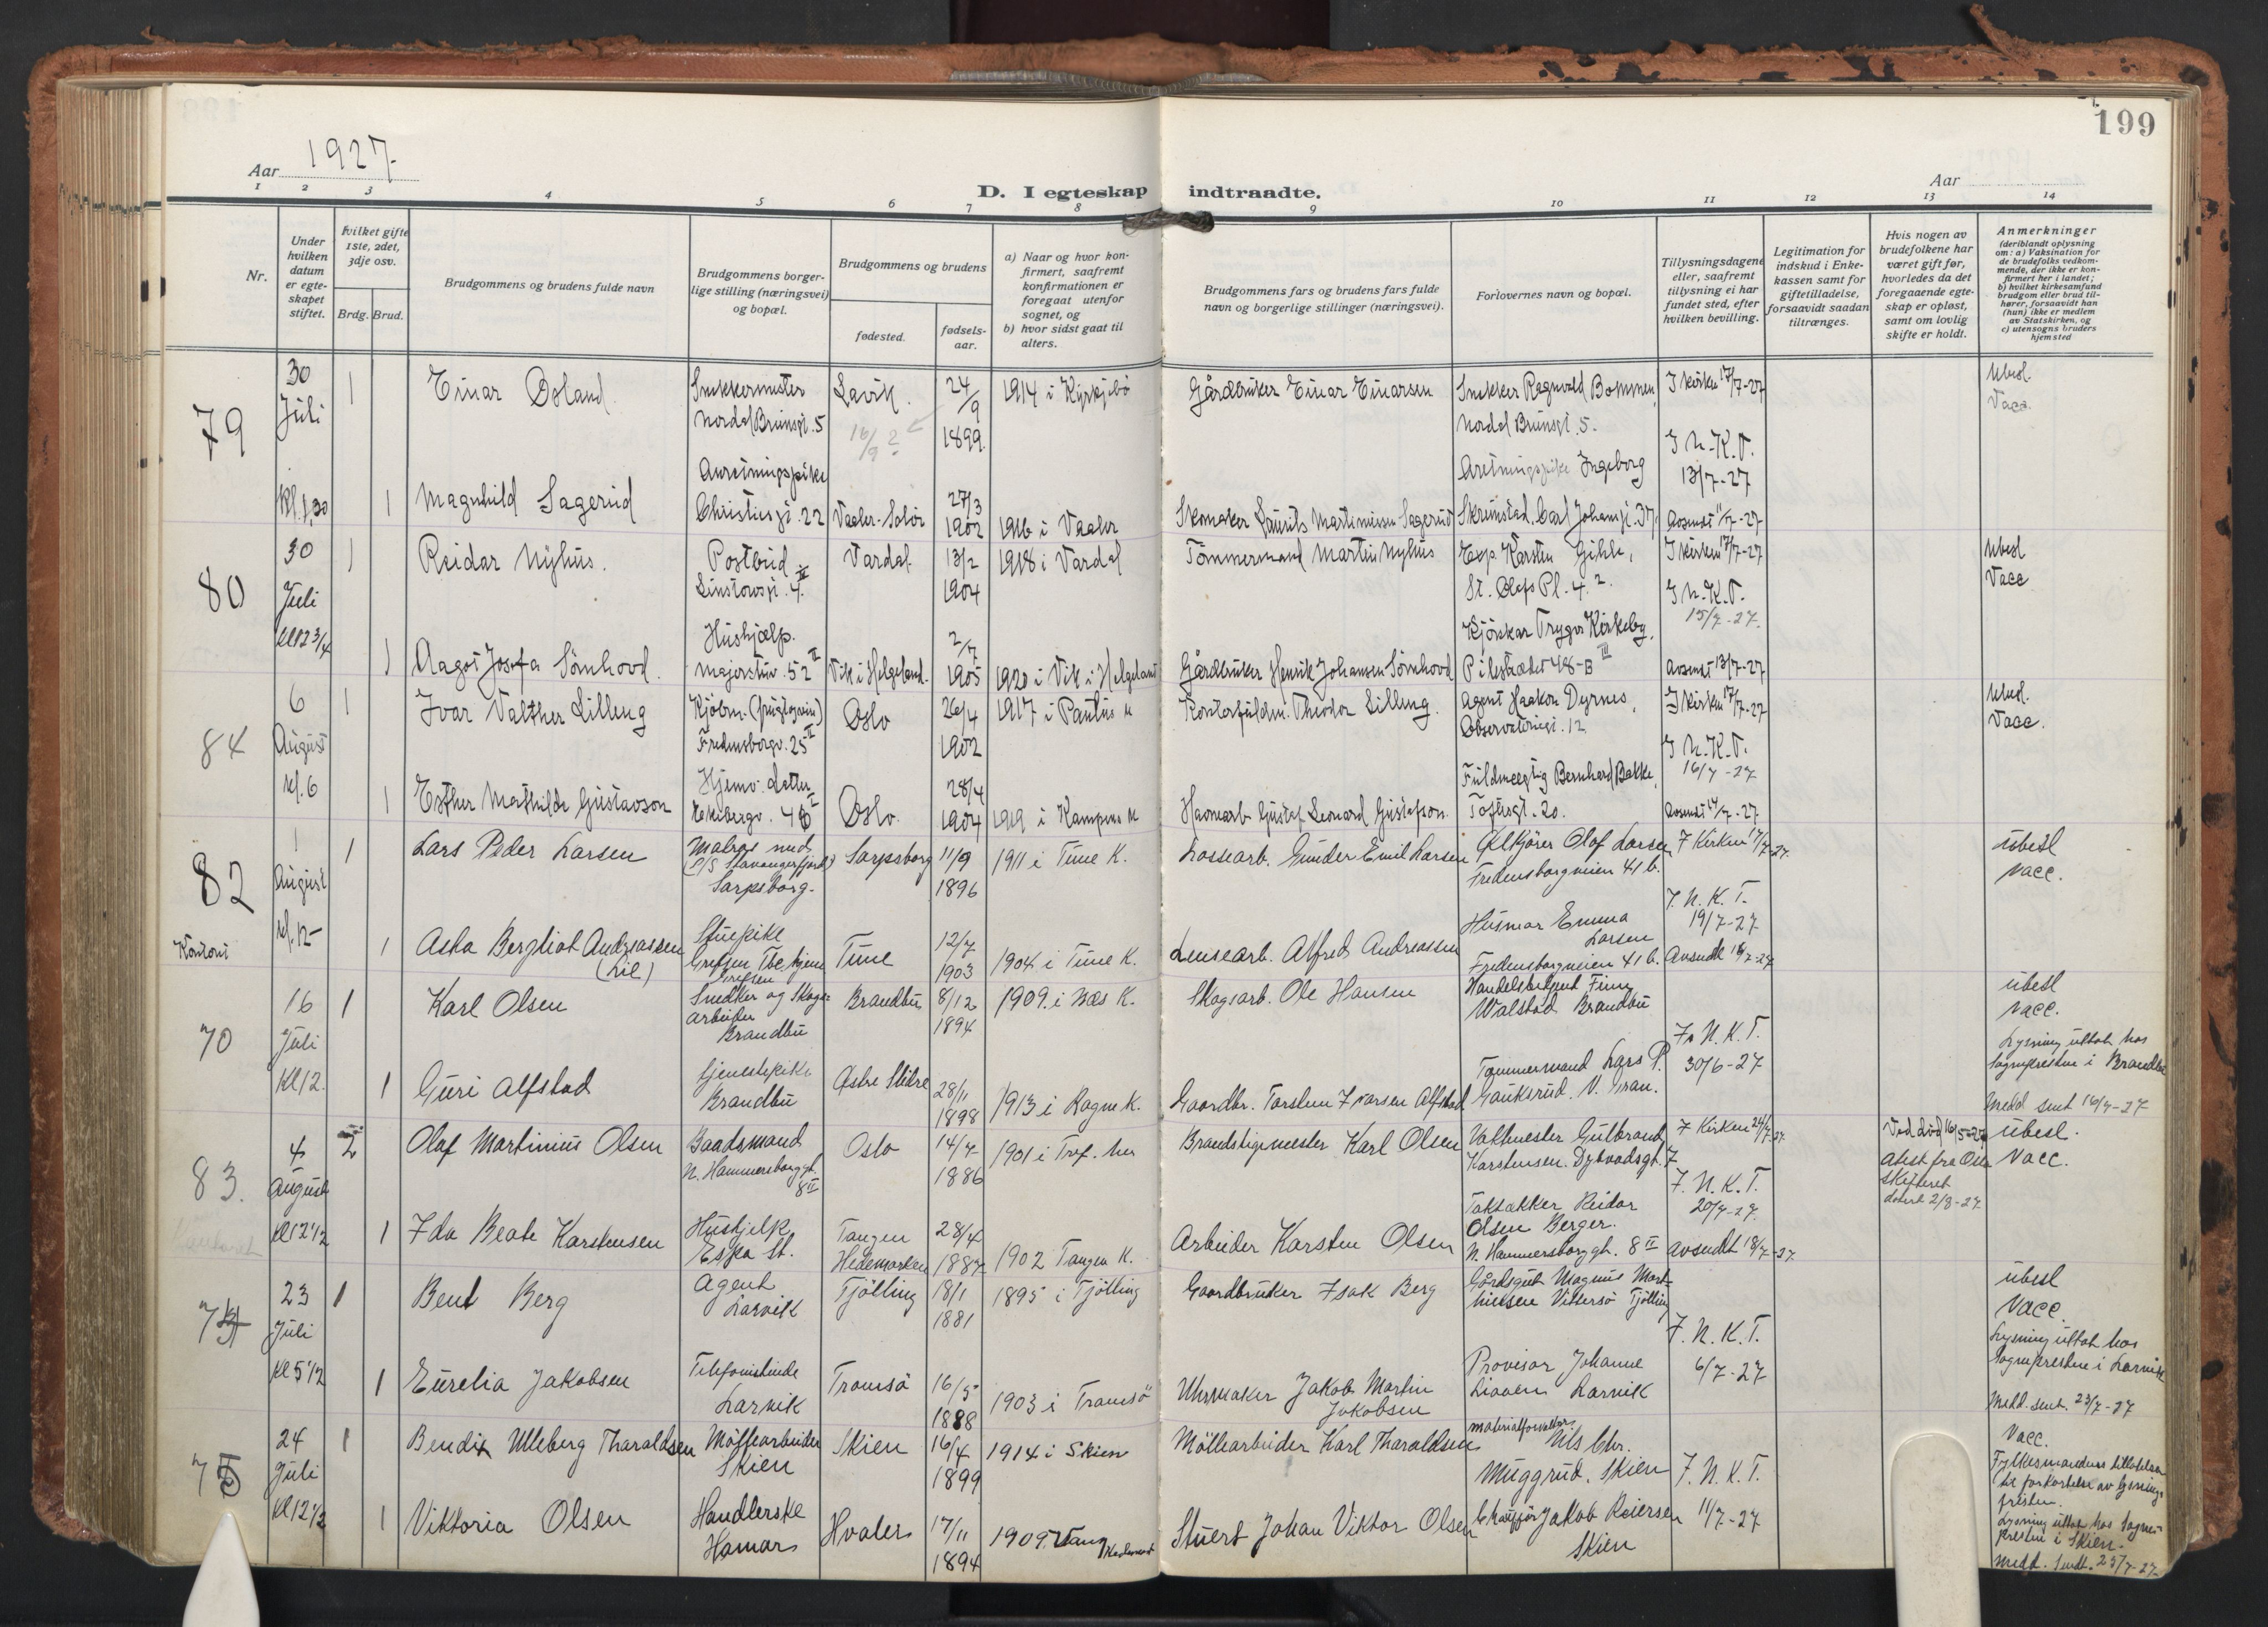 199
Aar 1927.
D. I egteskap indtraadte.
Aar
1 2 3 4 5 6 7 8 9 10 11 12 13 14
Nr.
Under hvilken datum er egteskapet stiftet.
Hvilket gifte 1ste, 2det, 3dje osv.
Brdg. Brud.
Brudgommens og brudens fulde navn
Brudgommens borgerlige stilling (næringsvei) og bopæl.
Brudgommens og brudens
fødested.
fødselsaar.
a) Naar og hvor konfirmert, saafremt konfirmationen er foregaat utenfor sognet, og
b) hvor sidst gaat til alters.
Brudgommens fars og brudens fars fulde navn og borgerlige stillinger (næringsvei).
Forlovernes navn og bopæl.
Tillysningsdagene eller, saafremt tillysning ei har fundet sted, efter hvilken bevilling.
Legitimation for indskud i Enkekassen samt for giftetilladelse, forsaavidt saadan tiltrænges.
Hvis nogen av brudefolkene har været gift før, hvorledes da det foregaaende egteskap er opløst, samt om lovlig skifte er holdt.
Anmerkninger
(deriblandt oplysning om: a) Vaksination for de brudefolks vedkommende, der ikke er konfirmert her i landet; b) hvilket kirkesamfund brudgom eller brud tilhører, forsaavidt han (hun) ikke er medlem av Statskirken, og c) utensogns bruders hjemsted
79
30 Juli
Kl. 1,30
1 Einar Østand
Snekkermester
Nordal Brunsgt. 5
Lavik.
16/9 ?
24/9 1899
1914 i Kyrkjebø
Gårdbruker Einar Einarsen
Snekker Ragnvald Bommen,
Nordal Brunsgt. 5.
I kirken 17/7-27
I N.K.T.
13/7-27
Ubesl.
Vacc.
1 Magnhild Sagerud
Anretningspike
Christiesgt. 22
Vaaler-Solør
27/3 1902
1916 i Vaaler
Skomaker Laurits Martiniusen Sagerud
Anretningspike Ingeborg
Skrimstad, Carl Johansgt. 37.
Avsendt 11/7-27
80
30 Juli
Kl 12 3/4
1 Reidar Nyhus.
Postbud
Linstowsgt. 4 III
Vardal
13/2 1904
1918 i Vardal
Tömmermand Martin Nyhus
Exp. Karsten Gihle,
St. Olafs Pl. 4.2.
I kirken 17/7-27
I N.K.T.
15/7-27.
Ubesl
Vacc
1 Aagot Josefa Sömhovd.
Hushjælp.
Majorstuv. 52 II
Vik i Helgeland.
2/7 1905
1920 i Vik i Helgeland
Gårdbruker Henrik Johansen Sömhovd
Kjörskar Trygve Kirkeby,
Pilestrædet 48-B III
Avsendt 13/7-27
84
6 August
Kl. 6
1 Ivar Valther Lilleng
Kjöbm.
Fredensborgv. 25 II
Oslo
26/4 1902
1917 i Paulus K
Kontorfuldm. Theodor Lilleng.
Agent Haakon Dyrnes,
Observatoriegt. 12
I kirken 17/7-27
I N.K.T.
16/7-27
Ubesl.
Vacc.
1 Esther Mathilde Gustavson
Hjemv. datter
Ekebergv. 48 I
Oslo.
28/4 1904
1919 i Kampens K
Havnearb Gustaf Leonard Gustafson.
Fuldmægtig Bernhard Bakke,
Toftesgt. 20.
Avsendt 14/7-27
82
Kontoret
1 August
Kl. 12-
1 Lars Peder Larsen
Matros med
(S/S Stavangerfjord)
Sarpsborg.
Sarpsborg
11/9 1896
1911 i Tune K.
Lossearb. Gunder Emil Larsen
Ølkjörer Olaf Larsen
Fredensborgveien 41 b.
I Kirken 17/7-27.
I. N. K. T.
19/7-27
übesl
vacc.
1 Asta Bergliot Andreassen
(Lie)
Stuepike
Grefsen
Tune
12/7 1903
1904 i Tune K.
Lensearb. Alfred Andreassen
Husmor Emma Larsen
Fredensborgveien 41 b.
Avsendt 18/7-27
70
16 Juli
Kl 12.
1 Karl Olsen
Snedker og Skogsarbeider
Brandbu
Brandbu
8/12 1894
1909. i Næs K.
Skogsarb. Ole Hansen
Handelsbetjent Finn
Walstad Brandbu
I. N. K. T.
30/6-27
übesl
vacc.
Lysning uttat hos
Sognepresten i Brandbu
Medd sent 16/7-27
1 Guri Alfstad
tjenestepike
Brandbu
Østre Slidre
28/11 1898
1913 i Rogne K.
Gaardbr. Torstein Ivarsen Alfstad
Tømmermand Lars P.
Gauksrud. V. Gran.
83.
4 August
Kl 12 1/2
2 Olaf Martinius Olsen
Baadsmand
N. Hammersborggt. 8 II
Oslo
14/7 1886
1901 i Tref. her
Brandstigemester Karl Olsen
Vaktmester Gulbrand
Karstensen. Dybvadsgt. 7
I Kirken 24/7-27.
I. N. K. T.
20/7-27.
Ved død 16/5-22
Attest fra Oslo
Skifteret
datert 2/8-27
übesl.
Vacc.
1 Ida Beate Karstensen
Hushjelp
Espa St.
Tangen
Hedemarken
28/4 1887
1902 Tangen K.
Arbeider Karsten Olsen
Taktækker Reidar
Olsen Berger.
N. Hammersborggt. 8 II
avsendt 18/7-27.
73
23 Juli
Kl 5 1/2
1 Bent Berg
Agent
Larvik
Tjölling
18/1 1881
1895 i Tjölling
Gaardbruker Isak Berg
Gårdsgut Magnus Martinsen Vittersö Tjölling
I. N. K. T.
6/7-27
übesl
Vacc.
Lysning uttat hos
Sognepresten i Larvik
Medd. sent. 23/7-27
1 Eurelia Jakobsen
Telefonistinde
Larvik
Tromsö
16/5 1888
1903 i Tromsö
Uhrmaker Jakob Martin
Jakobsen
Provisor Johanne
Liaaen Larvik
75
24 Juli
Kl 12 1/2
1 Bendix Ulleberg Tharaldsen
Möllearbeider
Skien
Skien
16/4 1899
1914 i Skien
Möllearbeider Karl Tharaldsen
materialforvalter
Nils Chr.
Muggrud. Skien
I. N. K. T.
11/7-27
Vacc.
Fylkesmandens tillatelse
til forkortelse av lysningsfristen.
Lysning uttat hos Sognepresten i Skien.
medd. sendt. 25/7-27
1 Viktoria Olsen
Handlerske
Hamar
Hvaler
17/11 1894
1909. Vang Hedemark
Stuert Johan Viktor Olsen
Chauffør Jakob Reiersen
Skien